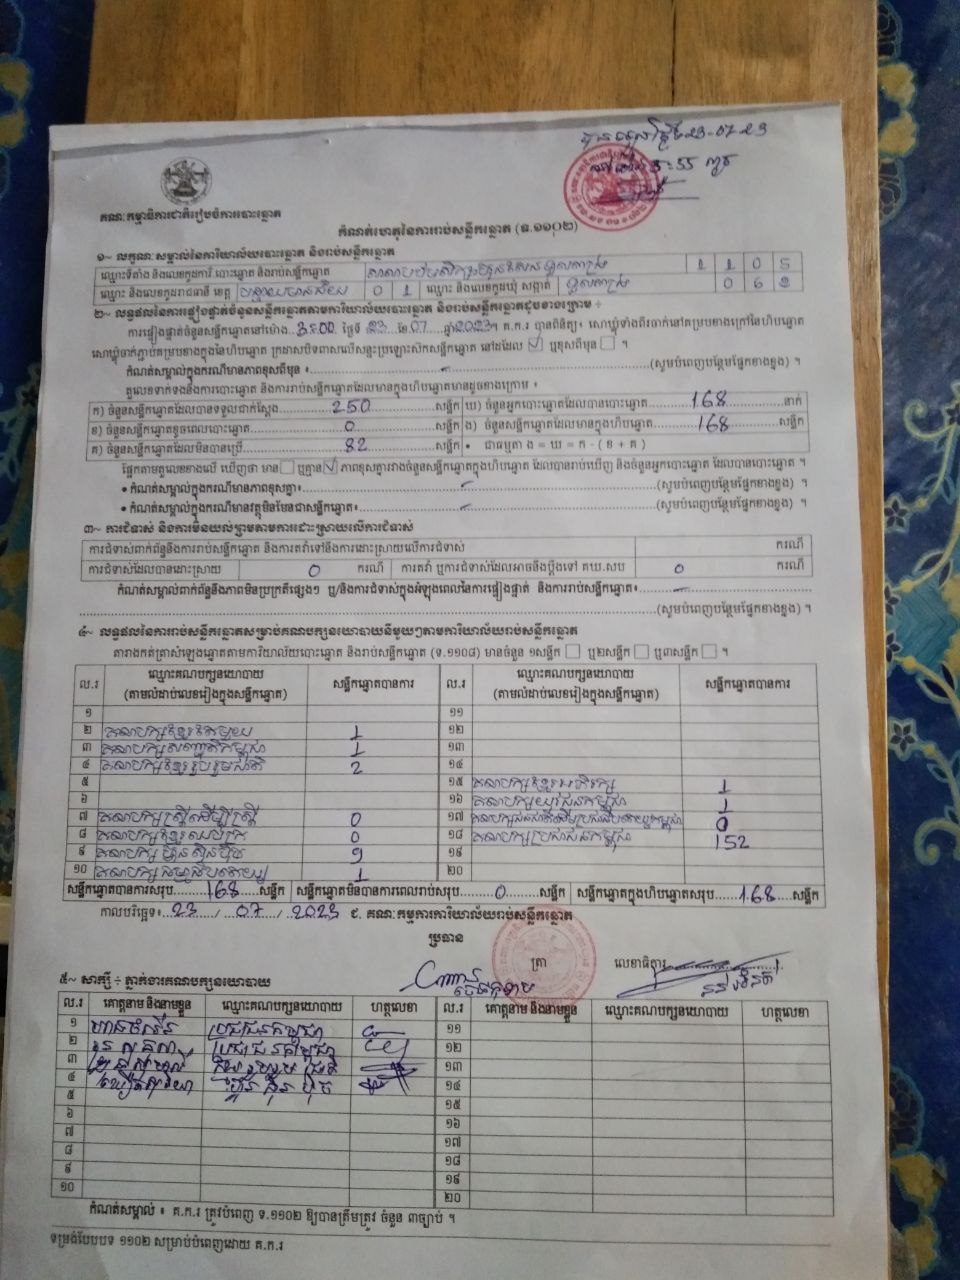 23-07-23
គណៈកម្មាធិការជាតិរៀបចំការបោះឆ្នោត
កំណត់ហេតុនៃការរាប់សន្លឹកឆ្នោត (ទ.១១០២)
១~ លក្ខណៈសម្គាល់នៃការិយាល័យបោះឆ្នោត និងរាប់សន្លឹកឆ្នោត
ឈ្មោះទីតាំង និងលេខកូដការិ.បោះឆ្នោត និងរាប់សន្លឹកឆ្នោត 1 1 0 5
ឈ្មោះ និងលេខកូដរាជធានី ខេត្ត បន្ទាយមានជ័យ 0 1 ឈ្មោះ និងលេខកូដឃុំ សង្កាត់
២~ លទ្ធផលនៃការផ្ទៀងផ្ទាត់ចំនួនសន្លឹកឆ្នោតតាមការិយាល័យបោះឆ្នោត និងរាប់សន្លឹកឆ្នោតដូចខាងក្រោម ÷
ការផ្ទៀងផ្ទាត់ចំនួនសន្លឹកឆ្នោតនៅម៉ោង 3:00 ថ្ងៃទី 23 ខែ 07 ឆ្នាំ 2023។ គ.ក.រ បានពិនិត្យ៖ សោឃ្លុំទាំងពីរចាក់នៅគម្របខាងក្រៅនៃហិបឆ្នោត
សោឃ្លុំចាក់ភ្ជាប់គម្របខាងក្នុងនៃហិបឆ្នោត ក្រដាសបិទពាសលើសន្ទះប្រឡោះសិកសន្លឹកឆ្នោត នៅដដែល ☑ ឬខុសពីមុន ☐ ។
កំណត់សម្គាល់ក្នុងករណីមានភាពខុសពីមុន ៖ - (សូមបំពេញបន្ថែមផ្នែកខាងខ្នង) ។
តួលេខទាក់ទងនឹងការបោះឆ្នោត និងការរាប់សន្លឹកឆ្នោតដែលមានក្នុងហិបឆ្នោតមានដូចខាងក្រោម ៖
ក) ចំនួនសន្លឹកឆ្នោតដែលបានទទួលជាក់ស្តែង 250 សន្លឹក ឃ) ចំនួនអ្នកបោះឆ្នោតដែលបានបោះឆ្នោត 168 នាក់
ខ) ចំនួនសន្លឹកឆ្នោតខូចពេលបោះឆ្នោត 0 សន្លឹក ង) ចំនួនសន្លឹកឆ្នោតដែលមានក្នុងហិបឆ្នោត 168 សន្លឹក
គ) ចំនួនសន្លឹកឆ្នោតដែលមិនបានប្រើ 82 សន្លឹក • ជាធម្មតា ង = ឃ = ក - ( ខ + គ )
ផ្អែកតាមតួលេខខាងលើ ឃើញថា មាន ☐ ឬគ្មាន ☑ ភាពខុសគ្នារវាងចំនួនសន្លឹកឆ្នោតក្នុងហិបឆ្នោត ដែលបានរាប់ឃើញ និងចំនួនអ្នកបោះឆ្នោត ដែលបានបោះឆ្នោត ។
• កំណត់សម្គាល់ក្នុងករណីមានភាពខុសគ្នា៖ - (សូមបំពេញបន្ថែមផ្នែកខាងខ្នង) ។
• កំណត់សម្គាល់ក្នុងករណីមានវត្ថុមិនមែនជាសន្លឹកឆ្នោត៖ - (សូមបំពេញបន្ថែមផ្នែកខាងខ្នង) ។
៣~ ការជំទាស់ និងការមិនយល់ព្រមតាមការដោះស្រាយលើការជំទាស់
ការជំទាស់ពាក់ព័ន្ធនឹងការរាប់សន្លឹកឆ្នោត និងការតវ៉ាទៅនឹងការដោះស្រាយលើការជំទាស់ ករណី
ការជំទាស់ដែលបានដោះស្រាយ 0 ករណី ការតវ៉ា ឬការជំទាស់ដែលអាចនឹងប្តឹងទៅ គឃ.សប 0 ករណី
កំណត់សម្គាល់ពាក់ព័ន្ធនឹងភាពមិនប្រក្រតីផ្សេងៗ ឬ/និងការជំទាស់ក្នុងអំឡុងពេលនៃការផ្ទៀងផ្ទាត់ និងការរាប់សន្លឹកឆ្នោត៖ -
(សូមបំពេញបន្ថែមផ្នែកខាងខ្នង) ។
៤~ លទ្ធផលនៃការរាប់សន្លឹកឆ្នោតសម្រាប់គណបក្សនយោបាយនីមួយៗតាមការិយាល័យរាប់សន្លឹកឆ្នោត
តារាងកត់ត្រាសំឡេងឆ្នោតតាមការិយាល័យបោះឆ្នោត និងរាប់សន្លឹកឆ្នោត (ទ.១១០៨) មានចំនួន ១សន្លឹក ☐ ឬ២សន្លឹក ☐ ឬ៣សន្លឹក ☐ ។
ល.រ ឈ្មោះគណបក្សនយោបាយ (តាមលំដាប់លេខរៀងក្នុងសន្លឹកឆ្នោត) សន្លឹកឆ្នោតបានការ ល.រ ឈ្មោះគណបក្សនយោបាយ (តាមលំដាប់លេខរៀងក្នុងសន្លឹកឆ្នោត) សន្លឹកឆ្នោតបានការ
១ ១១
២ គណបក្សខ្មែរតែមួយ 1 ១២
៣ គណបក្សសញ្ជាតិកម្ពុជា 1 ១៣
៤ គណបក្សខ្មែររួបរួមជាតិ 2 ១៤
៥ ១៥ គណបក្សខ្មែរអភិរក្ស 1
៦ ១៦ គណបក្សយុវជនកម្ពុជា 1
៧ គណបក្សស្ត្រីដើម្បីស្ត្រី 0 ១៧ 0
៨ គណបក្សខ្មែរឈប់ក្រ 0 ១៨ គណបក្សប្រជាជនកម្ពុជា 152
៩ គណបក្សហ្វ៊ុនស៊ិនប៉ិច 9 ១៩
១០ 1 ២០
សន្លឹកឆ្នោតបានការសរុប 168 សន្លឹក សន្លឹកឆ្នោតមិនបានការពេលរាប់សរុប 0 សន្លឹក សន្លឹកឆ្នោតក្នុងហិបឆ្នោតសរុប 168 សន្លឹក
កាលបរិច្ឆេទ៖ 23 / 07 / 2023 ជ. គណៈកម្មការការិយាល័យរាប់សន្លឹកឆ្នោត
ប្រធាន
ត្រា លេខាធិការ
៥~ សាក្សី ÷ ភ្នាក់ងារគណបក្សនយោបាយ
ល.រ គោត្តនាម និងនាមខ្លួន ឈ្មោះគណបក្សនយោបាយ ហត្ថលេខា ល.រ គោត្តនាម និងនាមខ្លួន ឈ្មោះគណបក្សនយោបាយ ហត្ថលេខា
១ ប្រជាជនកម្ពុជា ១១
២ ប្រជាជនកម្ពុជា ១២
៣ ១៣
៤ ហ្វ៊ុនស៊ិនប៉ិច ១៤
៥ ១៥
៦ ១៦
៧ ១៧
៨ ១៨
៩ ១៩
១០ ២០
កំណត់សម្គាល់ ៖ គ.ក.រ ត្រូវបំពេញ ទ.១១០២ ឱ្យបានត្រឹមត្រូវ ចំនួន ៣ច្បាប់ ។
ទម្រង់បែបបទ ១១០២ សម្រាប់បំពេញដោយ គ.ក.រ